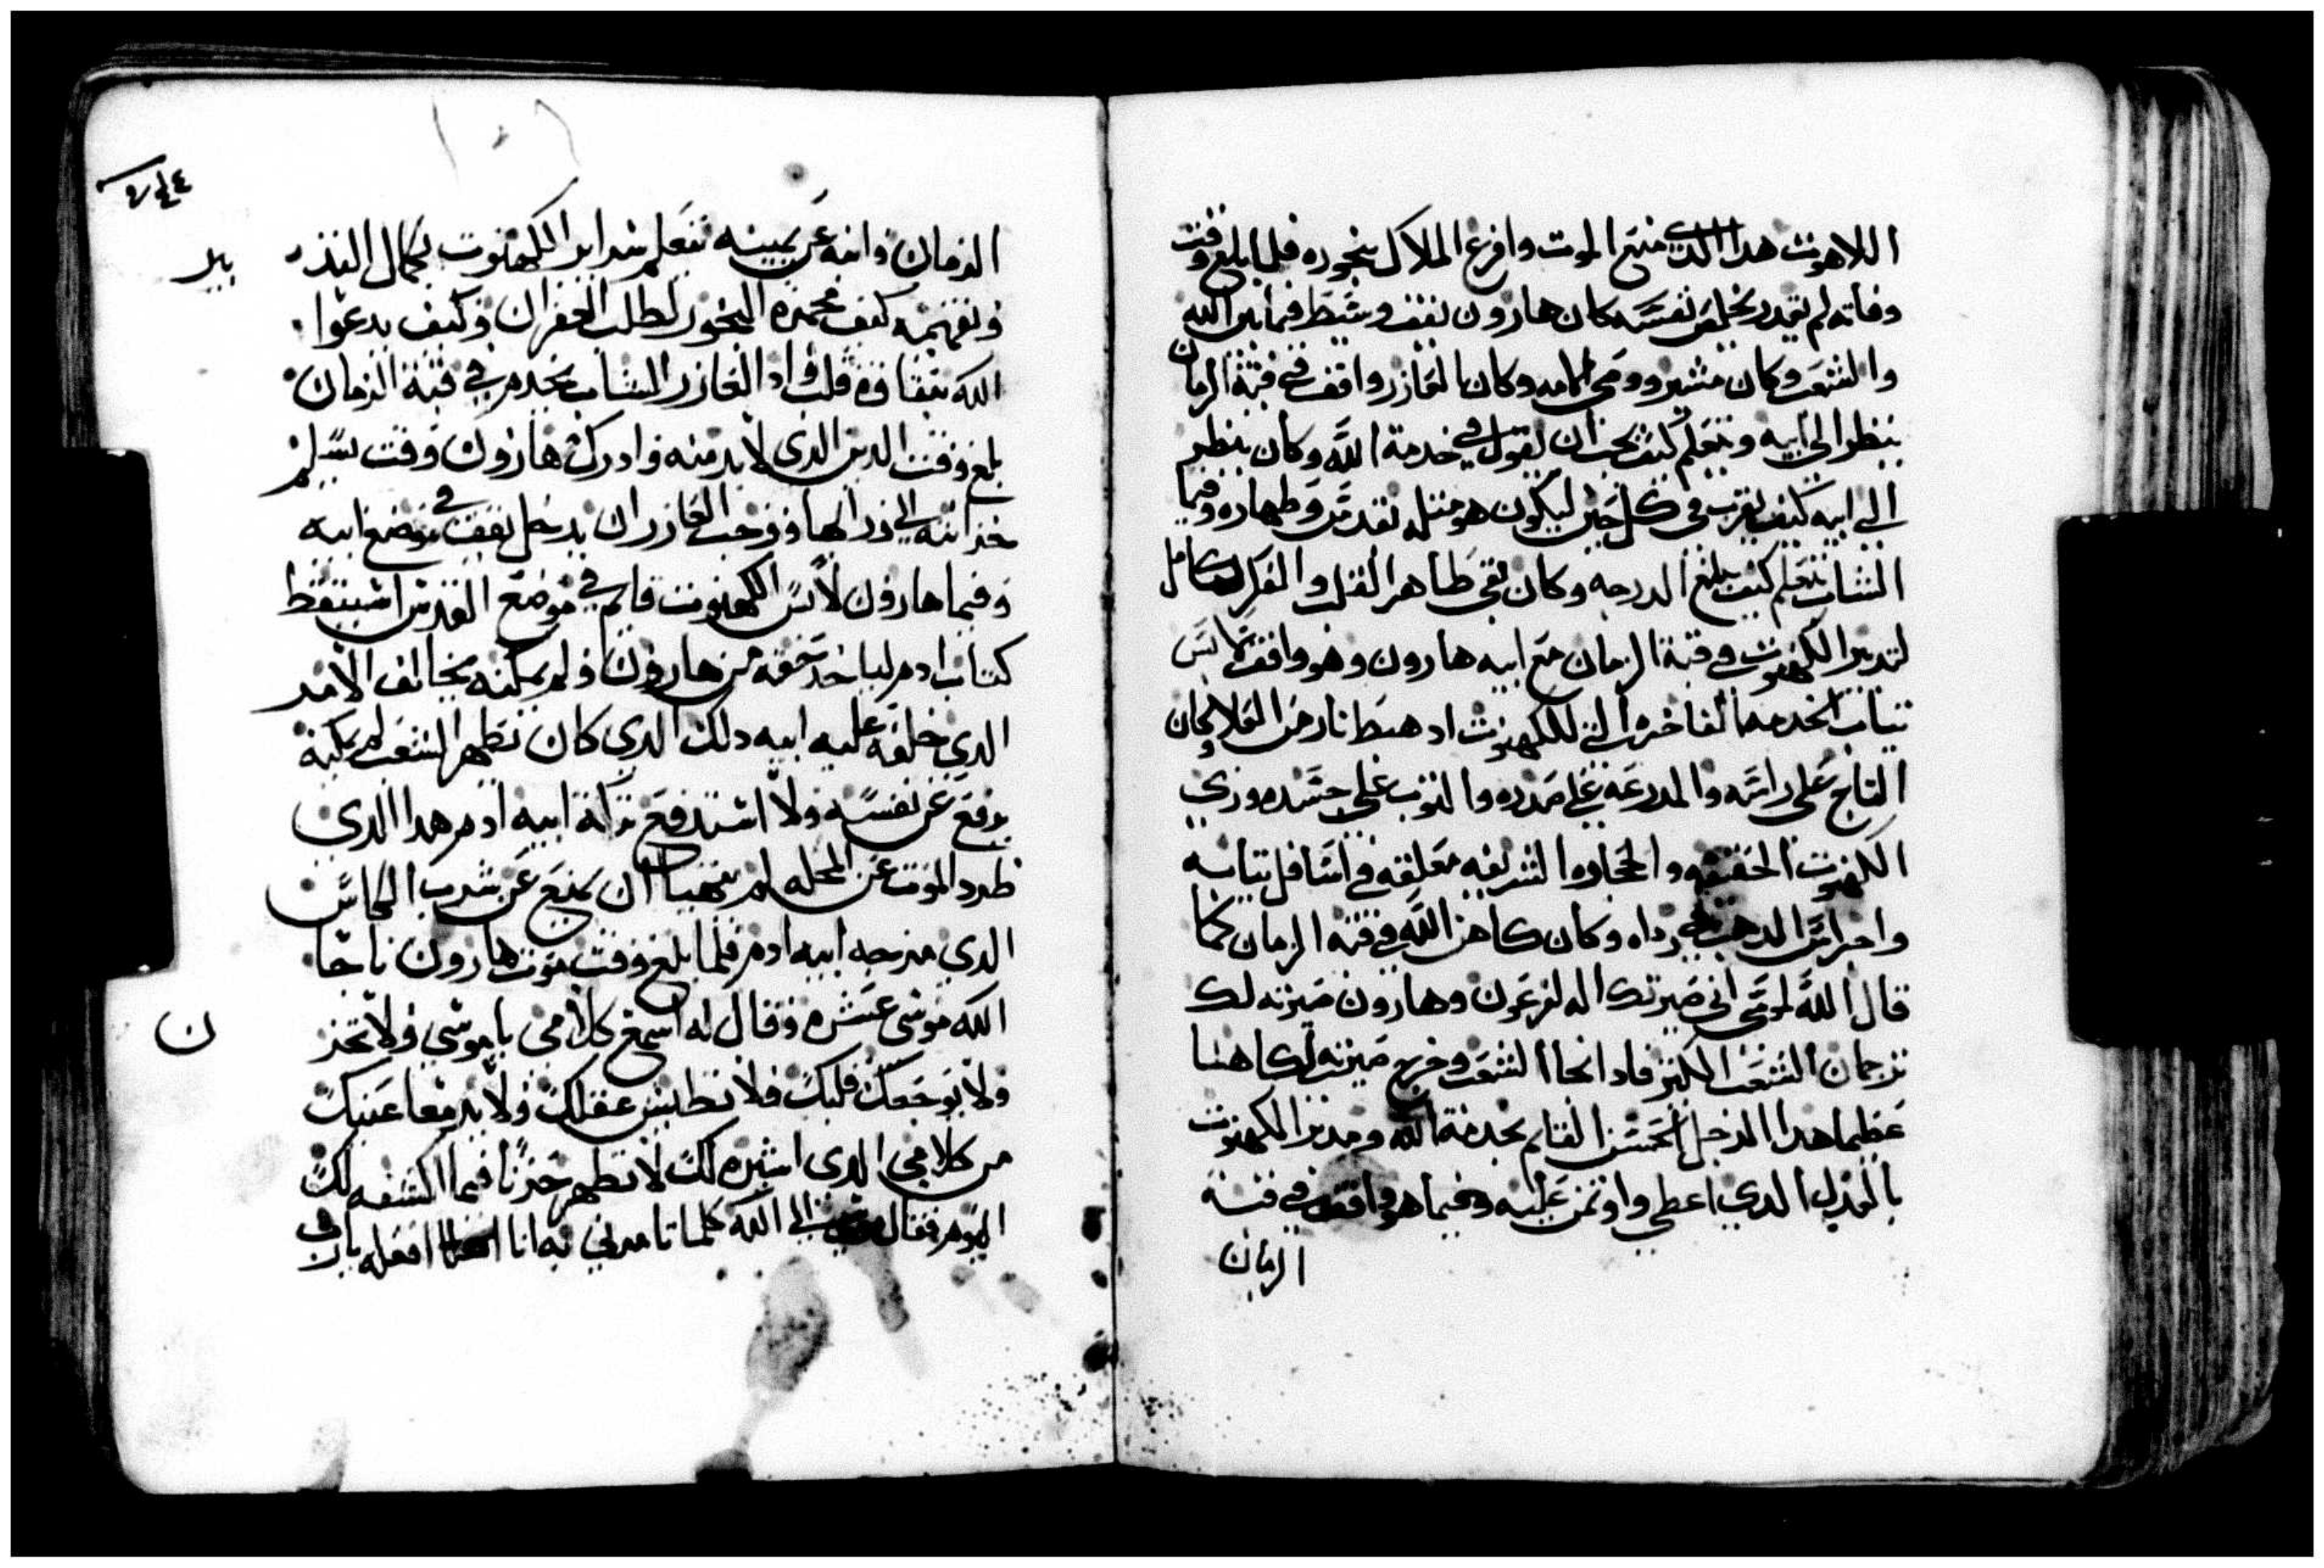 اللاهوت هدا الدي منع الموت وافرع الملاك ببخوره فلما بلغ وقت
وفاته لم يقدر يخلص نفسه كان هارون يقف وسط فيما بين الله
والشعب وكان مشير وومى كامد وكان العازر واقف في قبة الزمان
ينظر الى ابيه ويتعلم كيف يجب ان يقول في خدمة الله وكان ينظر
الى ابيه كيف يقرب في كل حين ليكون هو مثله تقدس وطهاره وفيما
الشاب يتعلم كيف يبلغ الدرجه وكان نقي طاهر القلب والفكر كامل
لتدبير الكهنوت في قبة الزمان مع ابيه هارون وهو واقف لابس
تياب الخدمه الفاخره التي للكهنوت اد هبط نار من العلا وكان
التاج على راسه والمدرعه على صدره والثوب على جسده وزي
الكهنوت الحقيقه والحجاره الشريفه معلقه في اسافل تيابه
واجراس الدهب في رداه وكان كاهن الله في قبة الزمان كما
قال الله لموسى اني صيرتك اله لفرعون وهارون صيرته لك
ترجمان الشعب الكبير فاد انحا الشعب وخرج صيرته لك كاهنا
عظيما هدا الرجل الحسن القايم بخدمة الله ومدبر الكهنوت
بالعدل الدي اعطي واوتمن عليه وفيما هو واقف في قبة
الزمان
الزمان وابنه عن يمينه تتعلم شراير الكهنوت بكمال النذر
وتفهمه كيف مجمرة البخور لطلب الغفران وكيف يدعوا
الله بنقاوة قلب واد العازر الشاب يخدم في قبة الزمان
بلغ وقت الدين الدي لا بد منه وادرك هارون وقت يسلم
خزانته الى ورالها ووجب العازر ان يدخل يقف في موضع ابيه
وفيما هارون لابس الكهنوت قايم في موضع القدس استيقظ
كتاب ادم لياخد حقه من هارون ولم يمكنه يخالف الامر
الدي خلفه عليه ابيه دلك الدي كان يطهر الشعب لم يمكنه
يدفع عن نفسه ولا استدفع تركة ابيه ادم هدا الدي
طرد الموت عن المحله لم يتهيا ان يمنع عن شرب الكاس
الدي مزجه ابيه ادم فلما بلغ وقت موت هارون ناجا
الله موسى عبده وقال له اسمع كلامي يا موسى ولا تحزن
ولا يوجعك قلبك فلا تطيش عقلك ولا يدمعا عينيك
من كلامي الدي اشيره لك لا تظهر حزنا فيما اكشفه لك
اليوم فقال موسى الى الله كلما تامرني به انا افعله يا رب